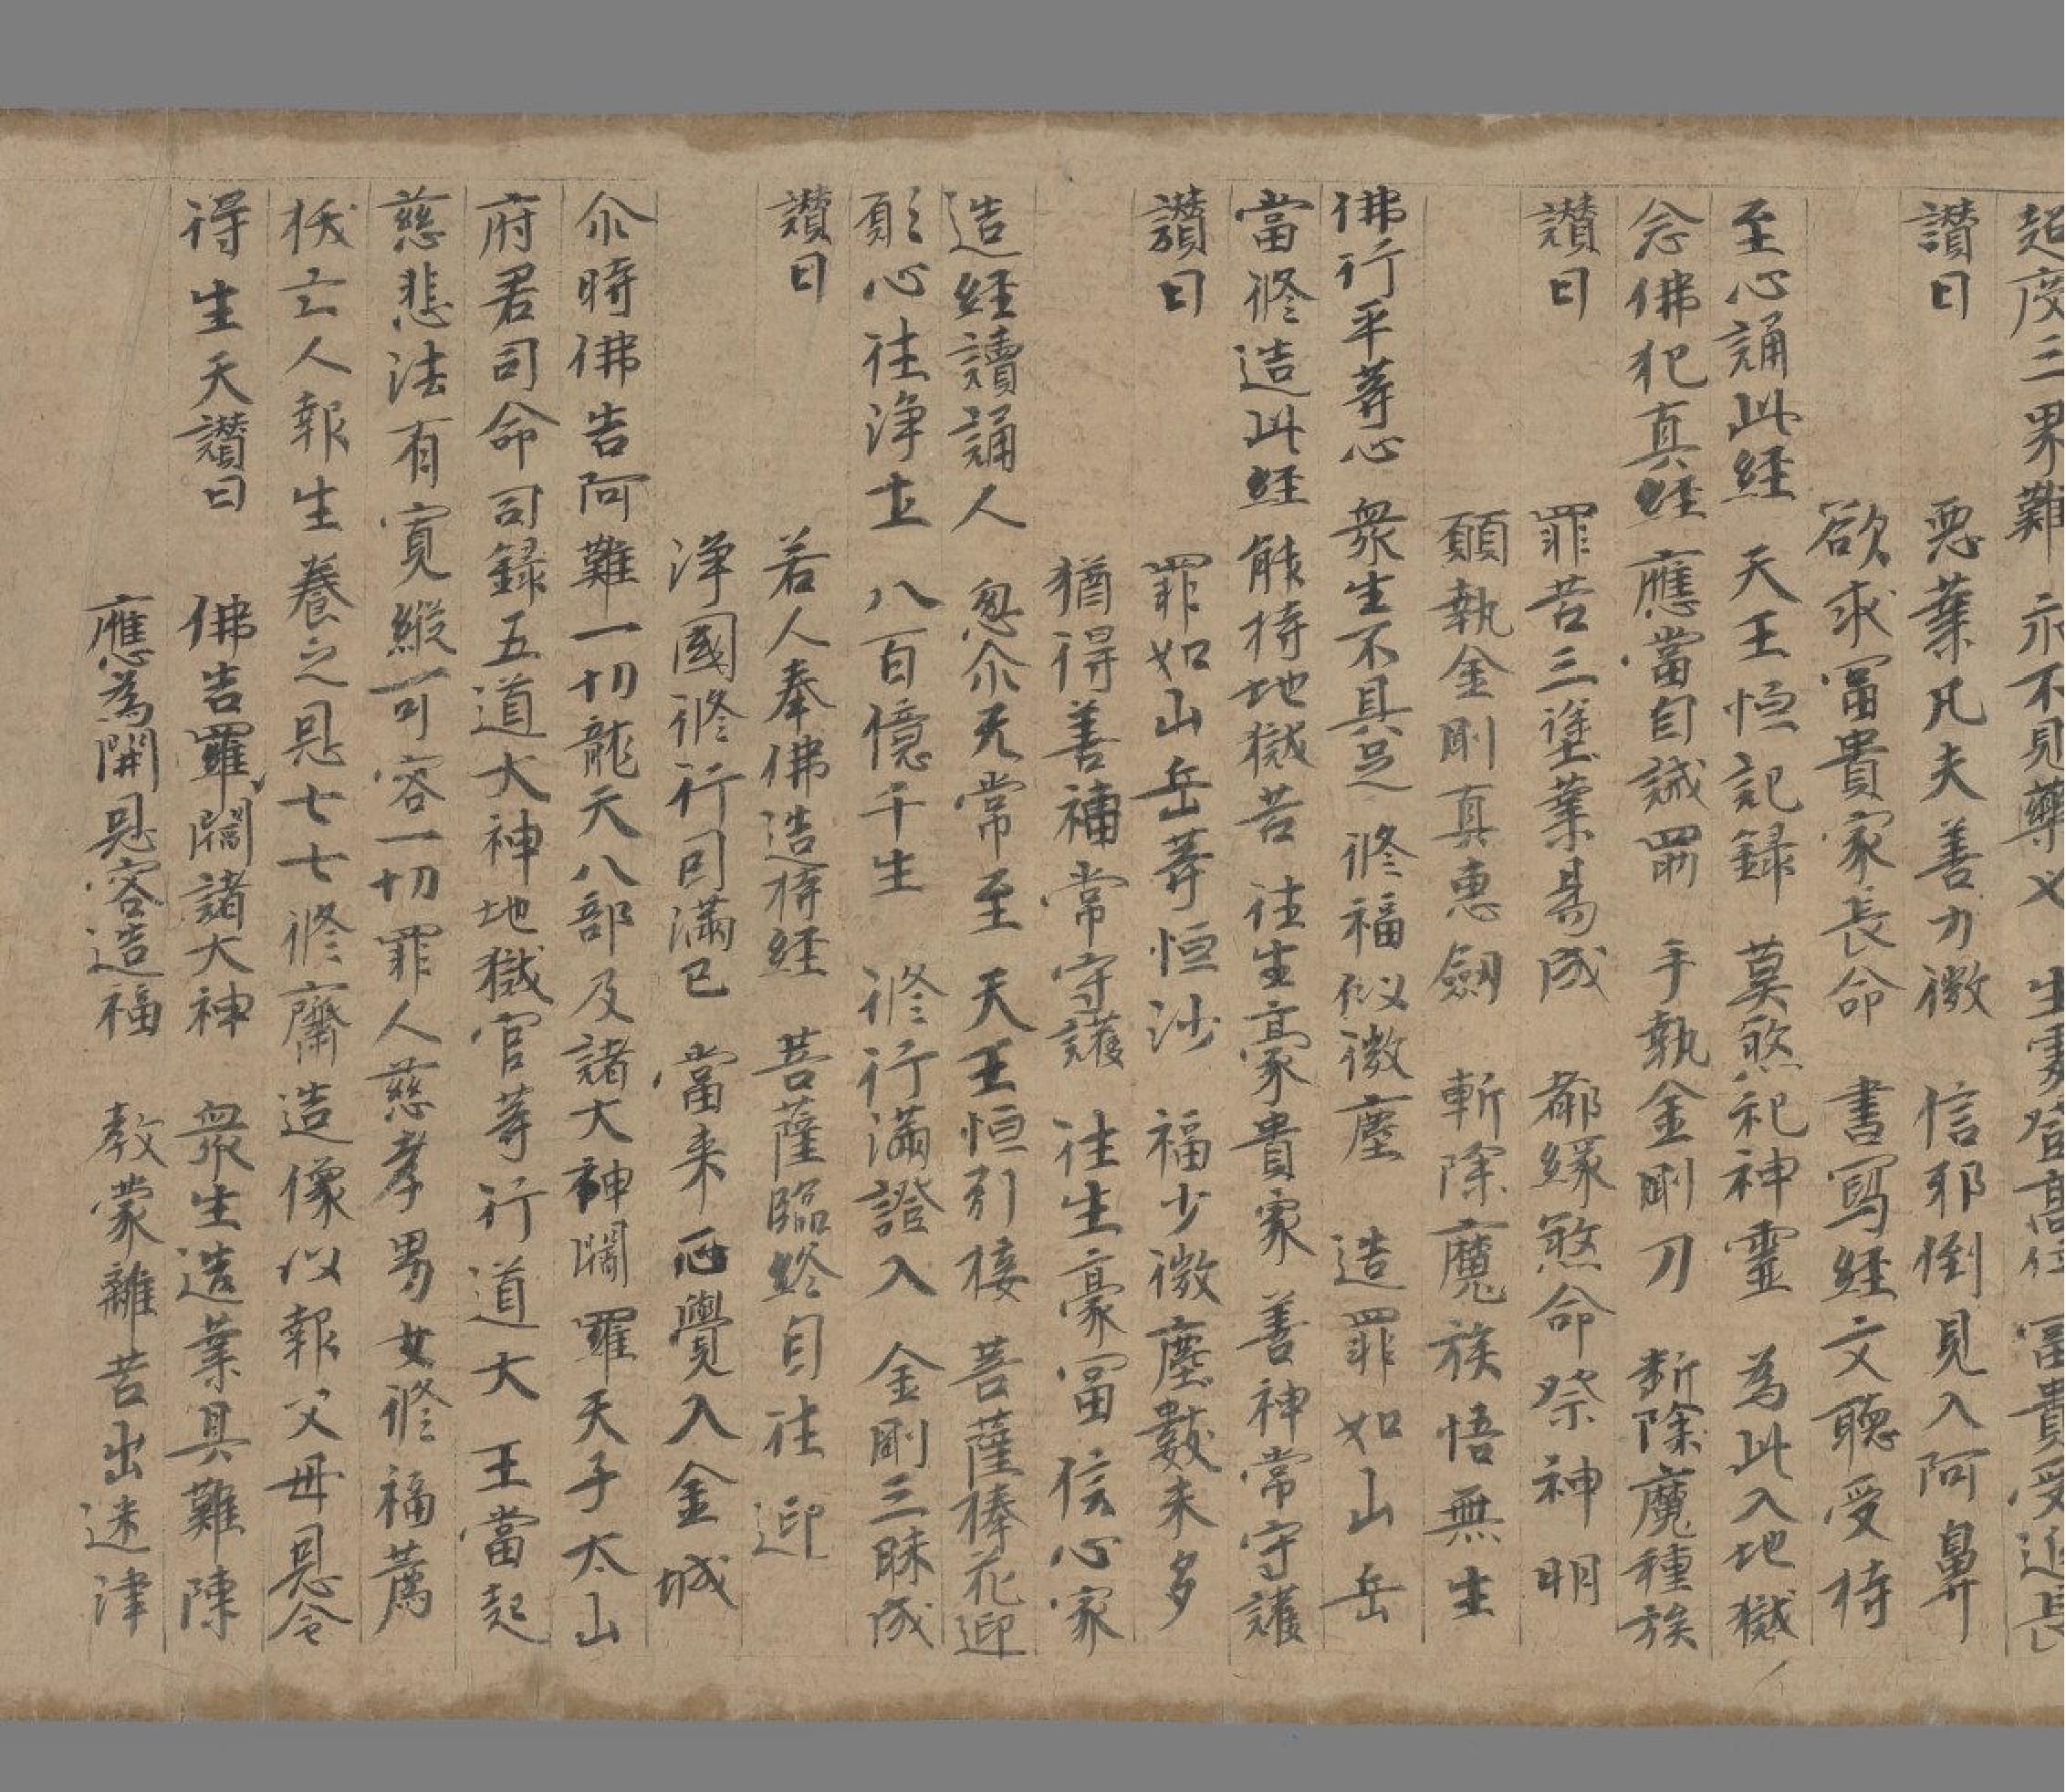 超度三界難 永不見藥叉 生處登高位 富貴受延長
讚曰 惡業凡夫善力微 信邪倒見入阿鼻
欲求冨貴家長命 書寫経文聽受持
至心誦此経 天王恒記録 莫煞祀神靈 為此入地獄
念佛犯真経 應當自誡罸 手執金剛刀 断除魔種族
讚曰 罪苦三塗業易成 都緣煞命祭神明
願執金剛真惠劔 斬除魔族悟無生
佛行平等心 衆生不具足 修福似微塵 造罪如山岳
當修造此経 能持地獄苦 往生豪貴家 善神常守護
讚曰 罪如山岳等恒沙 福少微塵數未多
猶得善神常守護 往生豪冨信心家
造経讀誦人 忽尒无常至 天王恒引接 菩薩捧花迎
願心往浄土 八百億千生 修行滿證入 金剛三昧成
讚曰 若人奉佛造持経 菩薩臨終自往迎
浄國修行因滿已 當来正覺入金城
尒時佛告阿難一切龍天八部及諸大神閻羅天子太山
府君司命司録五道大神地獄官等行道大王當起
慈悲法有寬縱可容一切罪人慈孝男女修福薦
拔亡人報生養之恩七七修齋造像以報父母恩令
得生天讚曰 佛告閻羅諸大神 衆生造業具難陳
應為開恩容造福 教蒙離苦出迷津